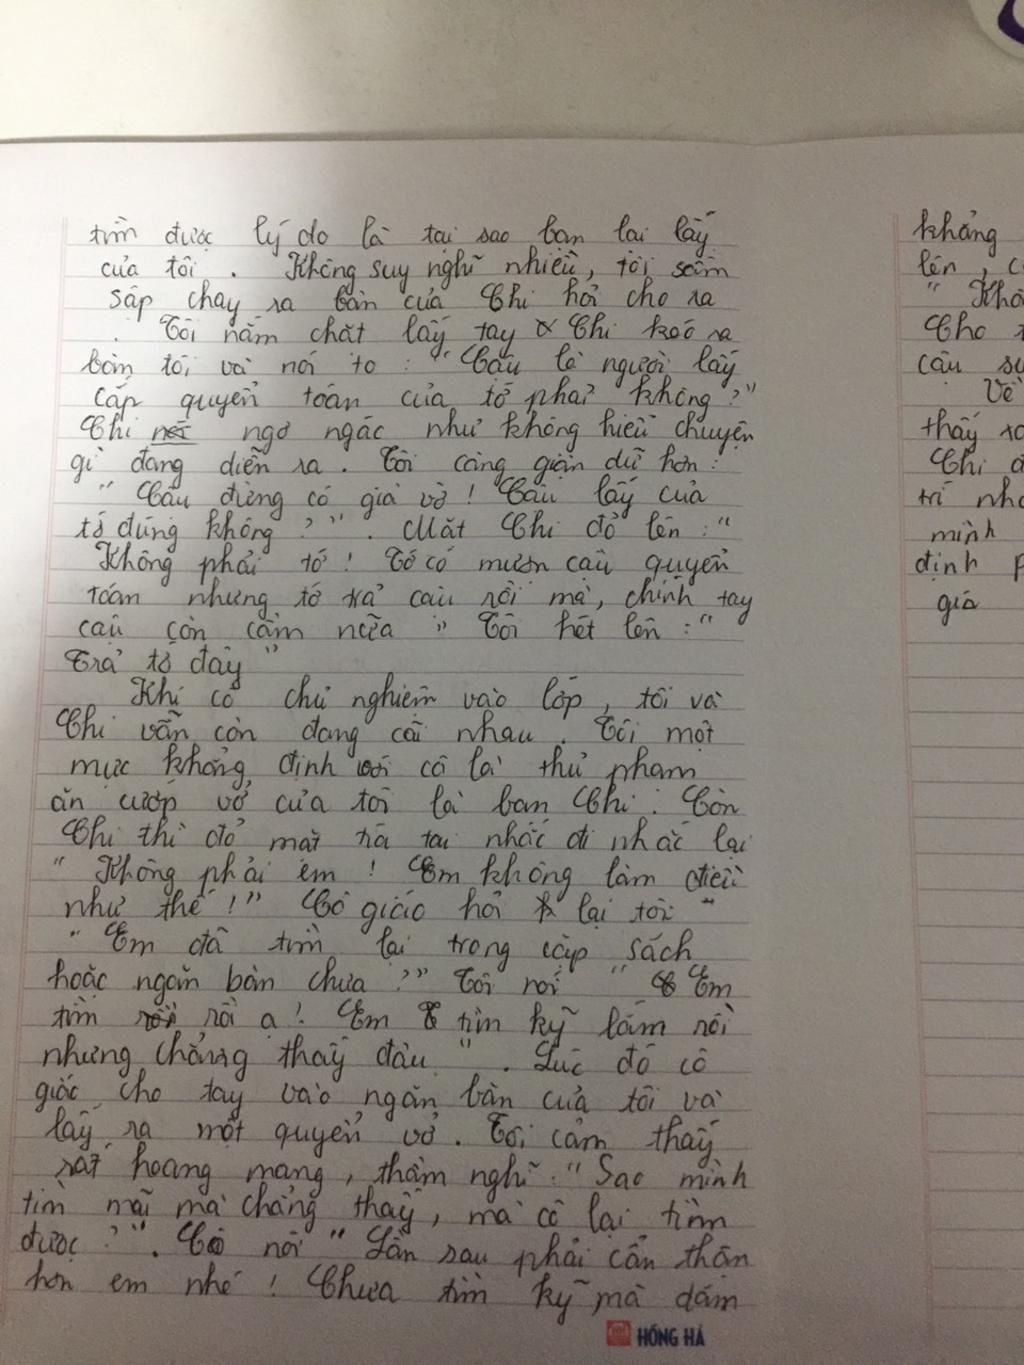 tìm được lý do là tại sao bạn lại lấy
của tôi. Không suy nghĩ nhiều, tôi sồm
sập chạy ra bàn của Chi hỏi cho ra
. Tôi nắm chặt lấy tay Chi kéo ra
bàn tôi và nói to : "Cậu là người lấy
cắp quyển toán của tớ phải không?"
Chi ngơ ngác như không hiểu chuyện
gì đang diễn ra. Tôi càng giận dữ hơn:
"Cậu đừng có giả vờ! Cậu lấy của
tớ đúng không?". Mặt Chi đỏ lên: "
Không phải tớ! Tớ có mượn cậu quyển
toán nhưng tớ trả cậu rồi mà, chính tay
cậu còn cầm nữa" Tôi hét lên: "
Trả tớ đây"
Khi cô chủ nghiệm vào lớp, tôi và
Chi vẫn còn đang cãi nhau. Tôi một
mực khẳng định với cô là thủ phạm
ăn cướp vở của tôi là bạn Chi. Còn
Chi thì đỏ mặt tía tai nhắc đi nhắc lại
"Không phải em! Em không làm điều
như thế!" Cô giáo hỏi lại tôi "
"Em đã tìm lại trong cặp sách
hoặc ngăn bàn chưa?" Tôi nói "Em
tìm rồi ạ! Em tìm kỹ lắm rồi
nhưng chẳng thấy đâu". Lúc đó cô
giáo cho tay vào ngăn bàn của tôi và
lấy ra một quyển vở. Tôi cảm thấy
rất hoang mang, thầm nghĩ: "Sao mình
tìm mãi mà chẳng thấy, mà cô lại tìm
được?". Cô nói "Lần sau phải cẩn thận
hơn em nhé! Chưa tìm kỹ mà dám
HỒNG HÀ
khẳng
lên, c
"Khô
Cho
cậu
Về
thấy
Chi đ
trí nhớ
mình
định p
giá